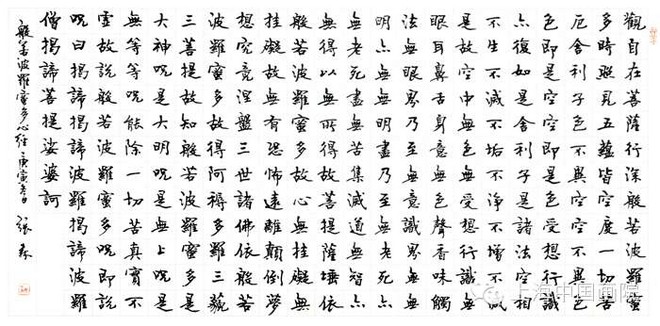 觀自在菩薩行深般若波羅蜜
多時照見五蘊皆空度一切苦
厄舍利子色不異空空不異色
色即是空空即是色受想行識
亦復如是舍利子是諸法空相
不生不滅不垢不淨不增不減
是故空中無色無受想行識無
眼耳鼻舌身意無色聲香味觸
法無眼界乃至無意識界無無
明亦無無明盡乃至無老死亦
無老死盡無苦集滅道無智亦
無得以無所得故菩提薩埵依
般若波羅蜜多故心無挂礙無
挂礙故無有恐怖遠離顛倒夢
想究竟涅盤三世諸佛依般若
波羅蜜多故得阿耨多羅三藐
三菩提故知般若波羅蜜多是
大神呪是大明呪是無上呪是
無等等呪能除一切苦真實不
虛故說般若波羅蜜多呪即說
呪曰揭諦揭諦波羅揭諦波羅
僧揭諦菩提娑婆訶
般若波羅蜜多心經 庚寅春日 張
上海中国画院